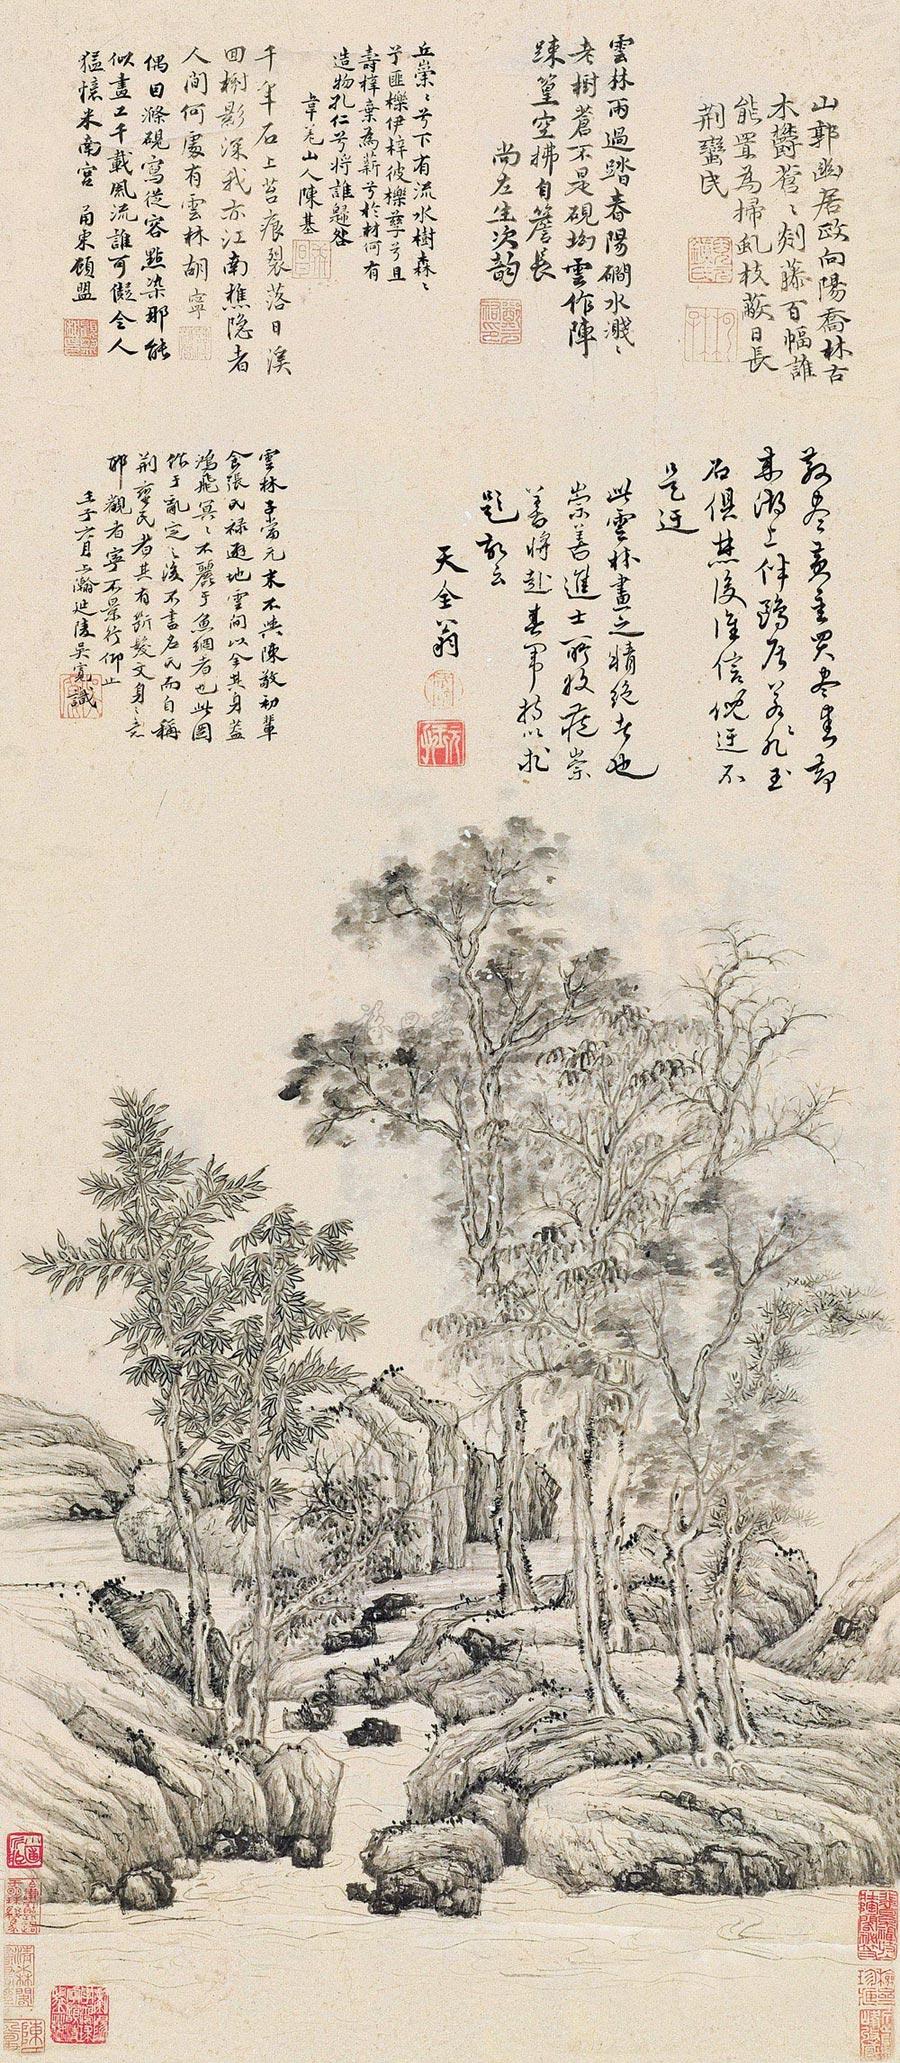 山郭幽居政向陽喬林古
木鬱蒼〻剡藤百幅誰
能置為掃虬枝蔽日長
荆蠻民
雲林雨過踏春陽磵水濺〻
老樹蒼不是硯坳雲作陣
疎篁空拂自簷長
尚左生次韵
丘崇〻兮下有流水樹森〻
兮匪櫟伊梓彼櫟孳兮且
壽梓棄為薪兮於材何有
造物孔仁兮將誰歸咎
韋羌山人陳基
千年石上苔痕裂落日溪
回樹影深我亦江南樵隱者
人間何處有雲林胡寧
偶因滌硯寫從容點染那能
似畫工千載風流誰可儗令人
猛憶米南宮甬東顧盟
散盡黃金買盡書却
來湖上伴鷗居
石俱焚後誰信倪迂不
是迂
此雲林畫之精絕者也
崇善進士所收藏崇
善將赴春闈持以求
題敬云
天全翁
雲林子當元末不與陳敬初輩
食張氏祿避地雲間以全其身蓋
鴻飛冥〻不麗于魚網者也此圖
作于亂定之後不書名氏而自稱
荆蠻民者其有斷髮文身之意
耶觀者寧不景行仰止
壬子六月上瀚延陵吳寬識